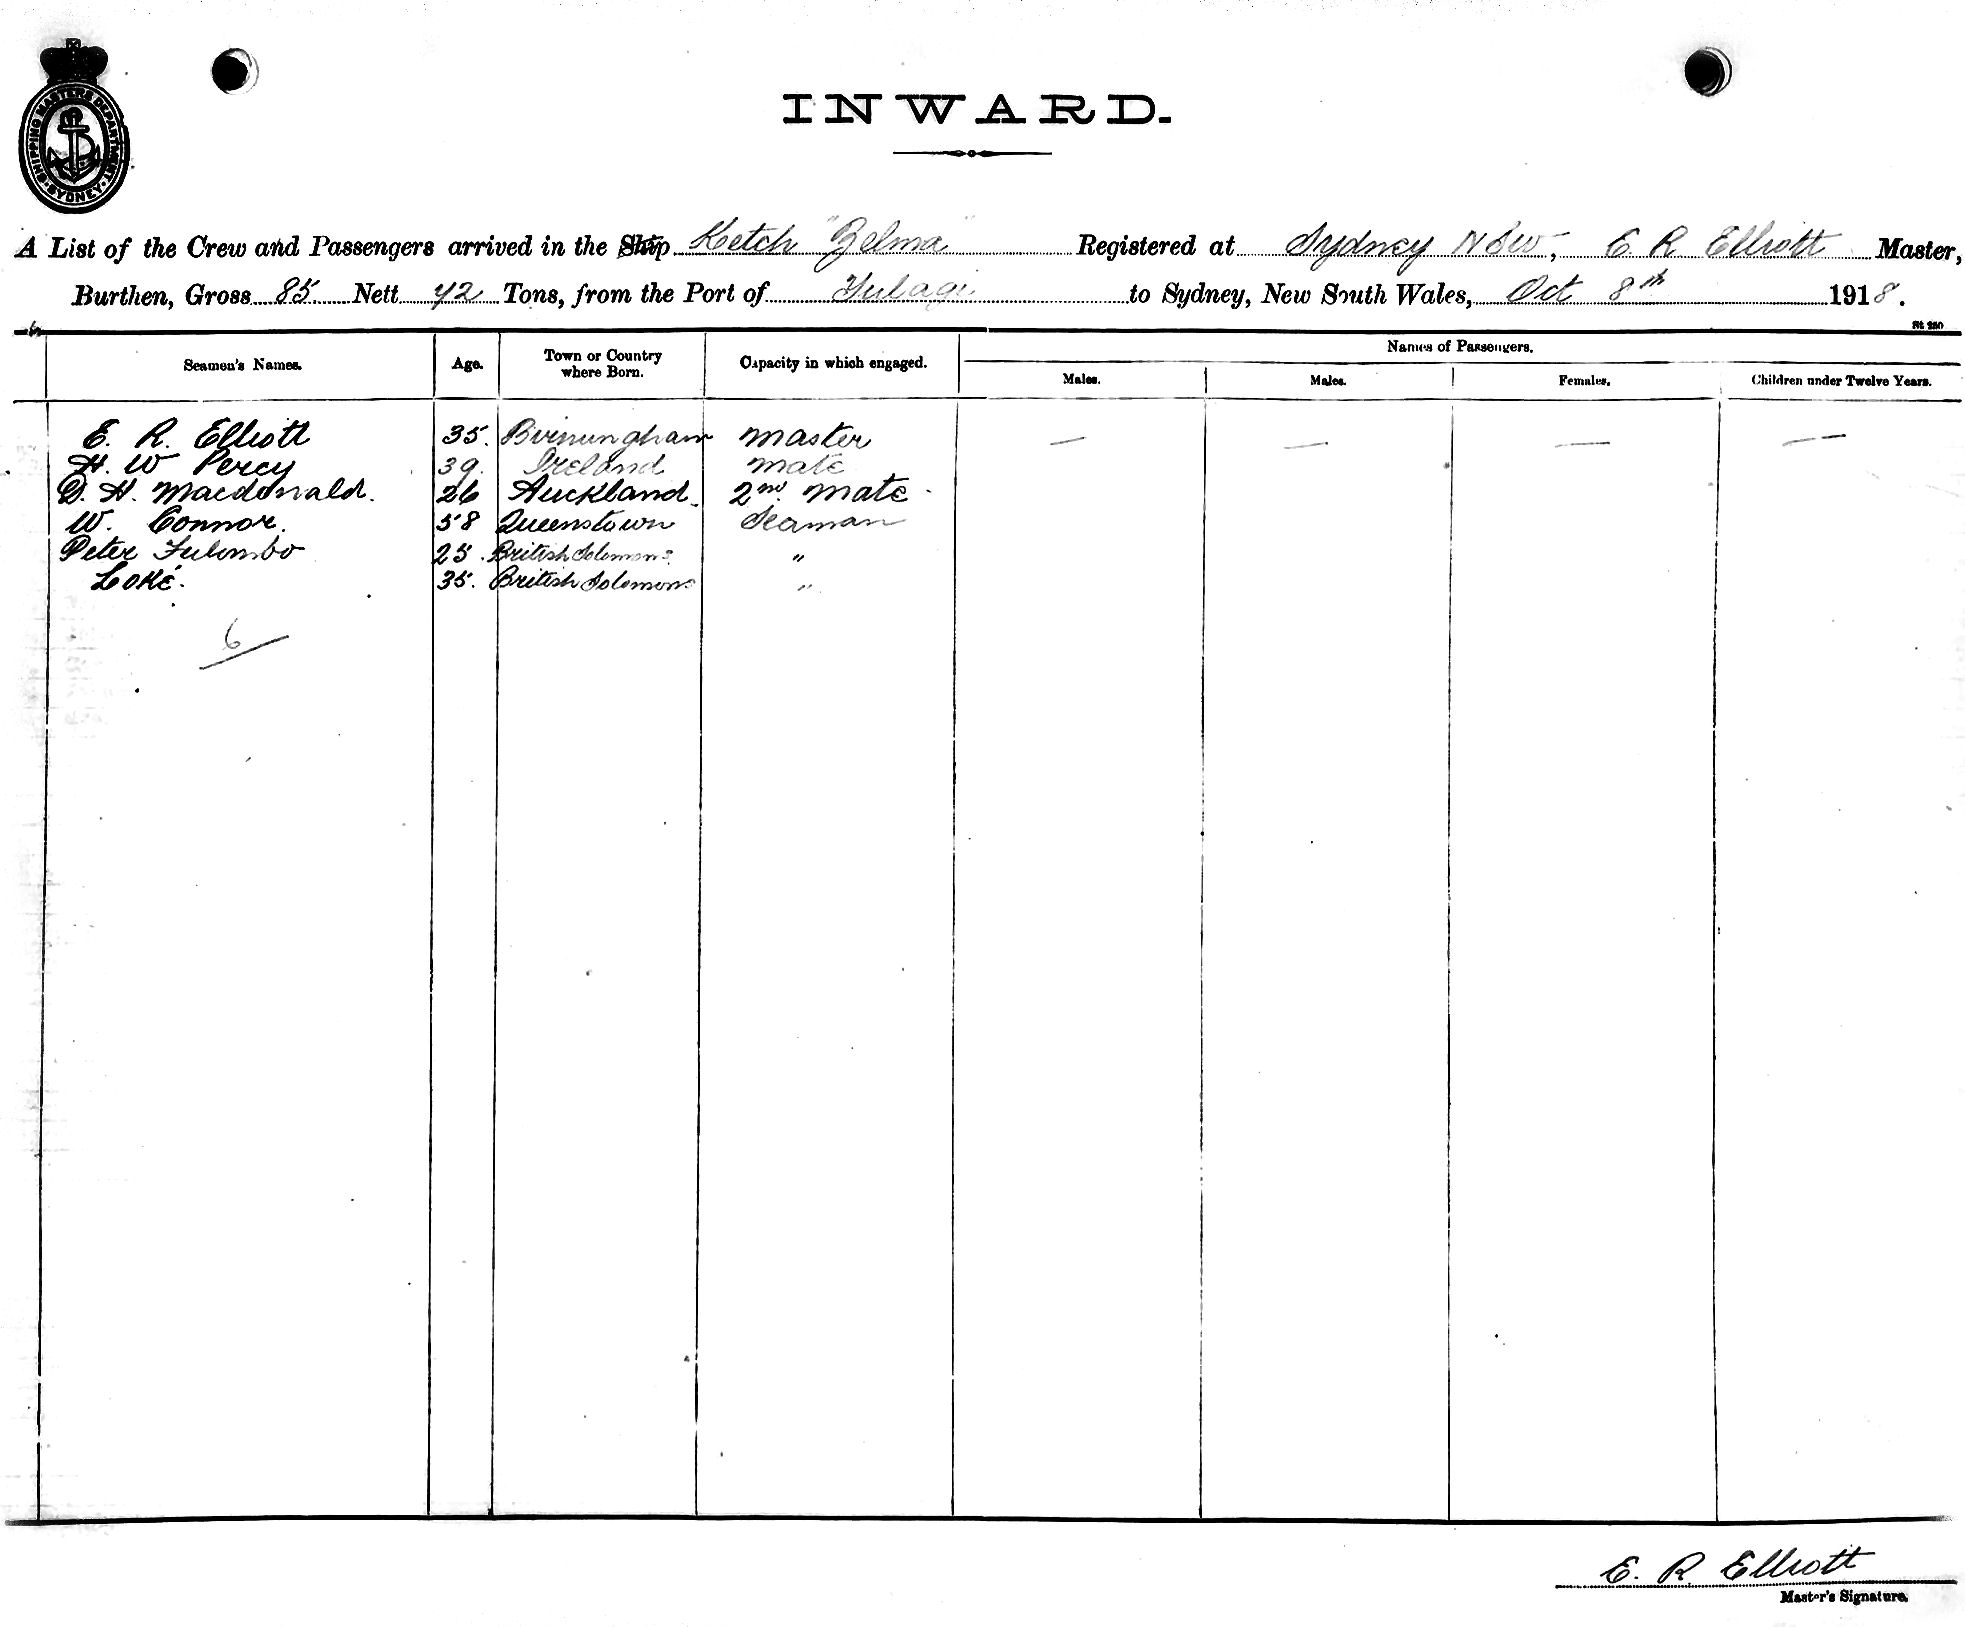 SHIPPING MASTERS DEPARTMENT · SYDNEY ·
INWARD.
A List of the Crew and Passengers arrived in the Ship Ketch "Zelma" Registered at Sydney NSW, E R Elliott Master,
Burthen, Gross 85 Nett 42 Tons, from the Port of Tulagi to Sydney, New South Wales, Oct 8th 1918.
6
St 280
Seamen's Names. Age. Town or Country where Born. Capacity in which engaged. Names of Passengers.
Males. Males. Females. Children under Twelve Years.
E. R. Elliott 35. Birmingham Master — — — —
H. W Percy 39. Ireland Mate
D. H. Macdonald. 26 Auckland. 2nd Mate.
W. Connor. 58 Queenstown Seaman
Peter Tulombo 25. British Solomons. "
Loké. 35. British Solomons "
6
E. R Elliott
Master's Signature.